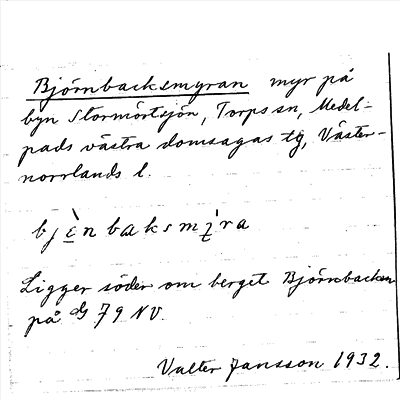 Björnbacksmyran myr på
byn Stormörtsjön, Torps sn, Medel-
pads västra domsagas tg, Väster-
norrlands l.
bjὲnbaksmy̆ra
Ligger söder om berget Björnbacken
på G 79 NV.
Valter Jansson 1932.